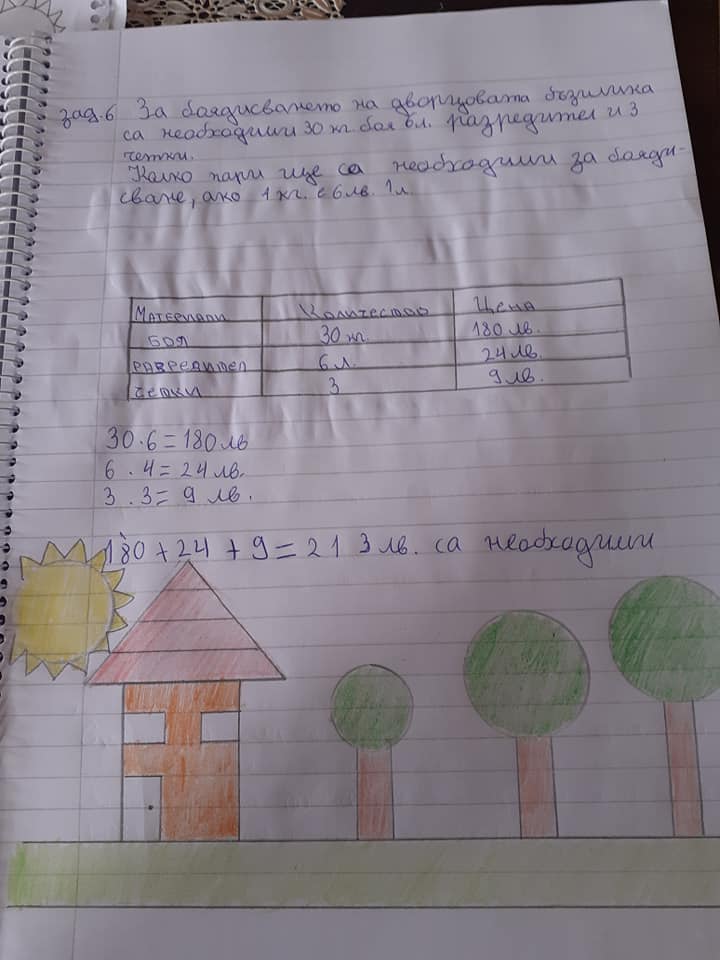 зад.6 За боядисването на дворцовата бъзилика
са необходими 30 кг. боя 6л. разредител и 3
четки.
Колко пари ще са необходими за бояди-
сване, ако 1 кг. е 6лв. 1л.
Материали Количество Цена
боя 30 кг. 180 лв.
разредител 6 л. 24 лв.
четки 3 9 лв.
30 . 6 = 180 лв
6 . 4 = 24 лв.
3 . 3 = 9 лв.
180 + 24 + 9 = 213 лв. са необходими